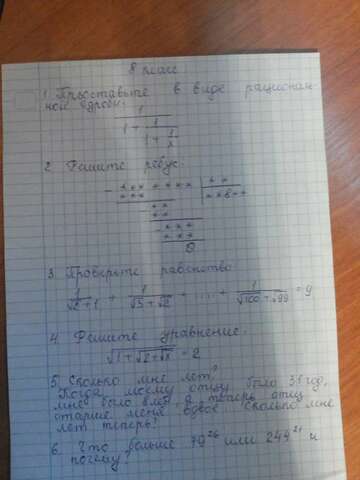 8 класс
1. Представьте в виде рационал-
ной дроби:
1
1 + 1
1 + 1
x
2. Решите ребус.
- *** **** | **
*** **8**
**
**
- ***
***
0
3. Проверьте равенство
1/√2+1 + 1/√3+√2 + .... + 1/√100+√99 = 9
4. Решите уравнение.
√1+√2+√x = 2
5. Сколько мне лет?
Когда моему отцу было 31 год,
мне было 8 лет, а теперь отец
старше меня вдвое. Сколько мне
лет теперь?
6. Что больше 79²⁶ или 244²¹ и
почему?